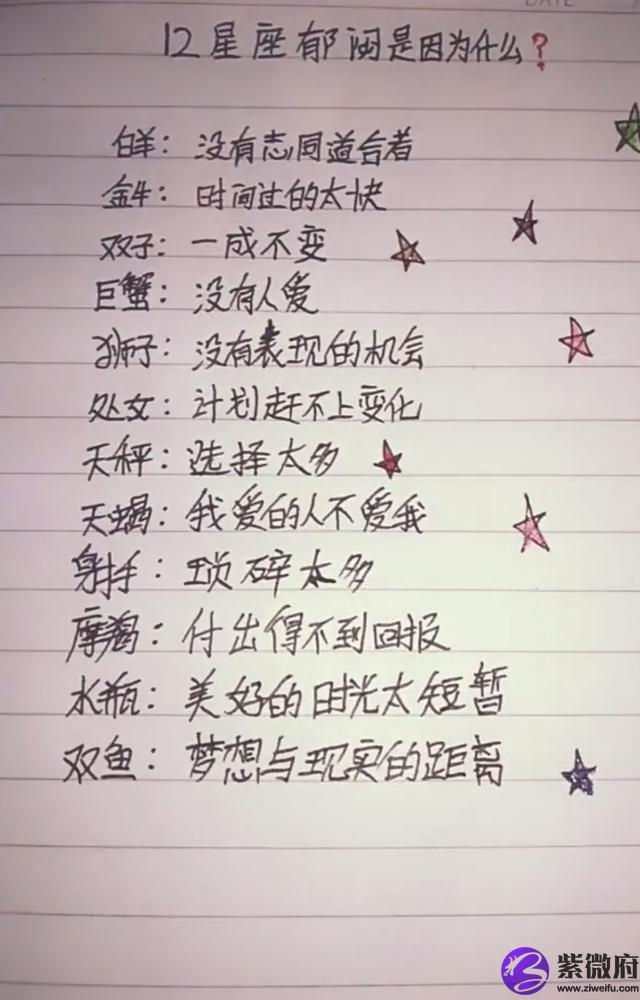 DATE
12星座郁闷是因为什么?
白羊：没有志同道合者
金牛：时间过的太快
双子：一成不变
巨蟹：没有人爱
狮子：没有表现的机会
处女：计划赶不上变化
天秤：选择太多
天蝎：我爱的人不爱我
射手：琐碎太多
摩羯：付出得不到回报
水瓶：美好的时光太短暂
双鱼：梦想与现实的距离
紫微府
www.ziweifu.com